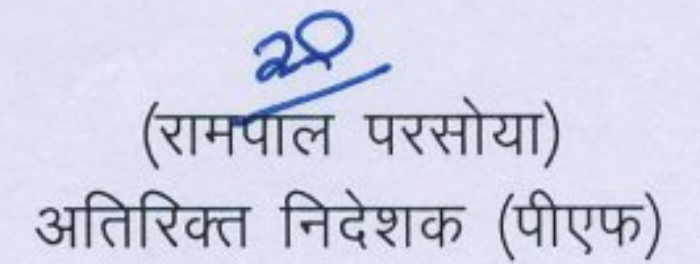 (रामपाल परसोया)
अतिरिक्त निदेशक (पीएफ)